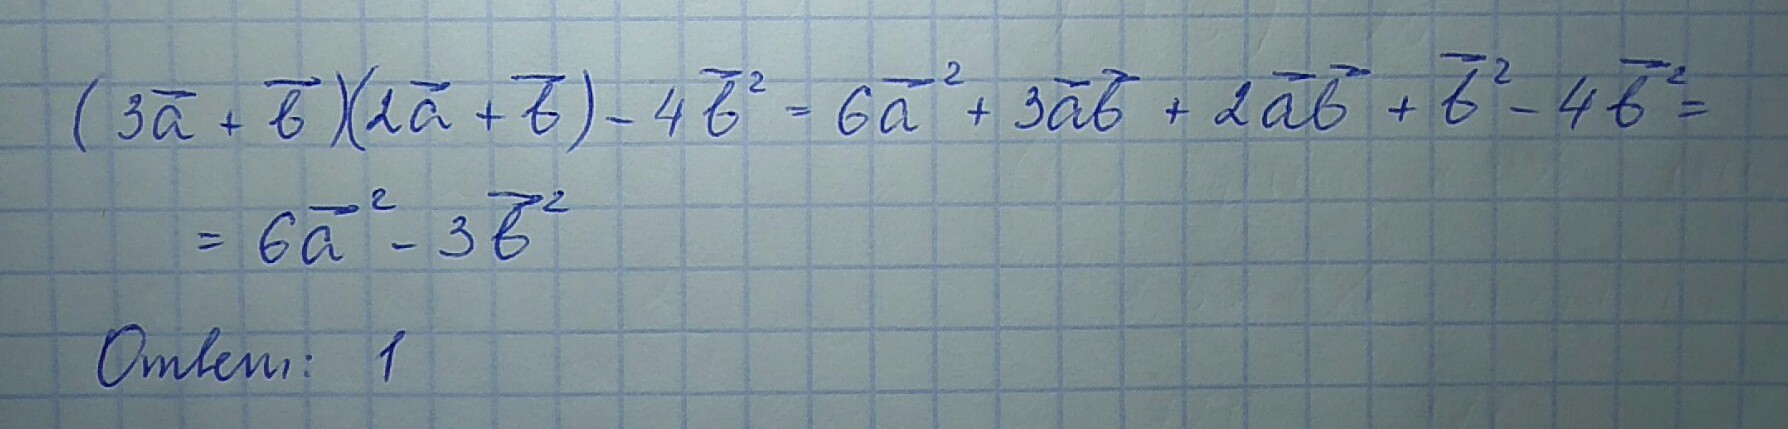 (3a⃗ + b⃗)(2a⃗ + b⃗) - 4b⃗² = 6a⃗² + 3a⃗b⃗ + 2a⃗b⃗ + b⃗² - 4b⃗² =
= 6a⃗² - 3b⃗²
Ответ: 1